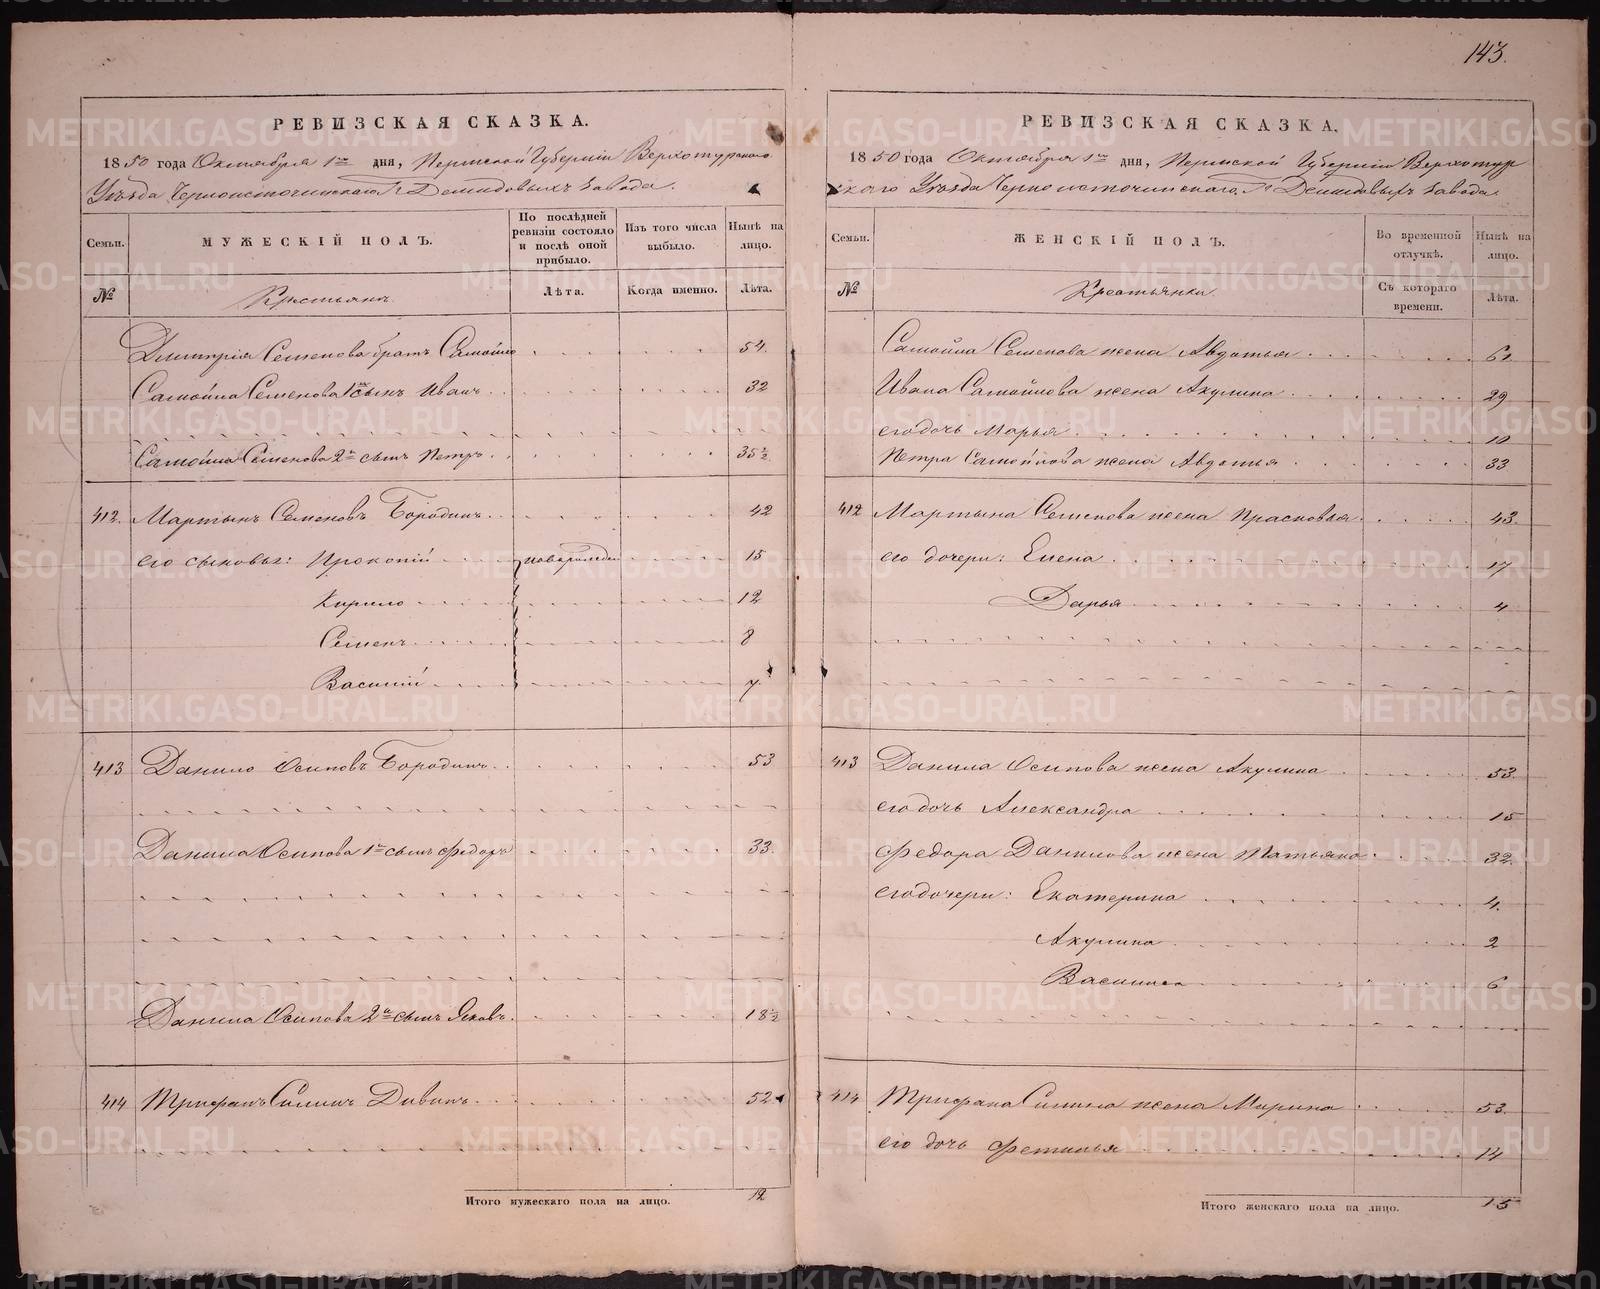 143.
РЕВИЗСКАЯ СКАЗКА.
1850 года Октября 1го дня, Пермской Губерніи Верхотурскаго
Уѣзда Черноисточинскаго Гг. Демидовыхъ завода.
Семьи. МУЖЕСКІЙ ПОЛЪ. По послѣдней ревизіи состояло и послѣ оной прибыло. Изъ того числа выбыло. Нынѣ на лицо.
№ Крестьянъ. Лѣта. Когда именно. Лѣта.
Дмитрія Семенова братъ Самойло 54.
Самойла Семенова 1й сынъ Иванъ 32
Самойла Семенова 2й сынъ Петръ 35½
412. Мартынъ Семеновъ Бородинъ 42
его сыновья: Прокопій 15
Кирило 12
Семенъ 8
Василій 7.
413 Данило Осиповъ Бородинъ 53
Данила Осипова 1й сынъ Федоръ 33.
Данила Осипова 2й сынъ Яковъ 18½
414 Трифанъ Силинъ Дивинъ 52
Итого мужескаго пола на лицо. 12
РЕВИЗСКАЯ СКАЗКА.
1850 года Октября 1го дня, Пермской Губерніи Верхотур
скаго Уѣзда Черноисточинскаго Гг. Демидовыхъ завода
Семьи. ЖЕНСКІЙ ПОЛЪ. Во временной отлучкѣ. Нынѣ на лицо.
№ Крестьянки. Съ котораго времени. Лѣта.
Самойла Семенова жена Авдотья 61
Ивана Самойлова жена Акулина 29
его дочь Марья 10
Петра Самойлова жена Авдотья 33
412 Мартына Семенова жена Прасковья 43.
его дочери: Елена 17
Дарья 4
413 Данила Осипова жена Акулина 53.
его дочь Александра 15
Федора Данилова жена Татьяна 32.
его дочери: Екатерина 4.
Акулина 2
Василиса 6
414 Трифана Силина жена Марина 53.
его дочь Фетинья 14
Итого женскаго пола на лицо. 15
METRIKI.GASO-URAL.RU